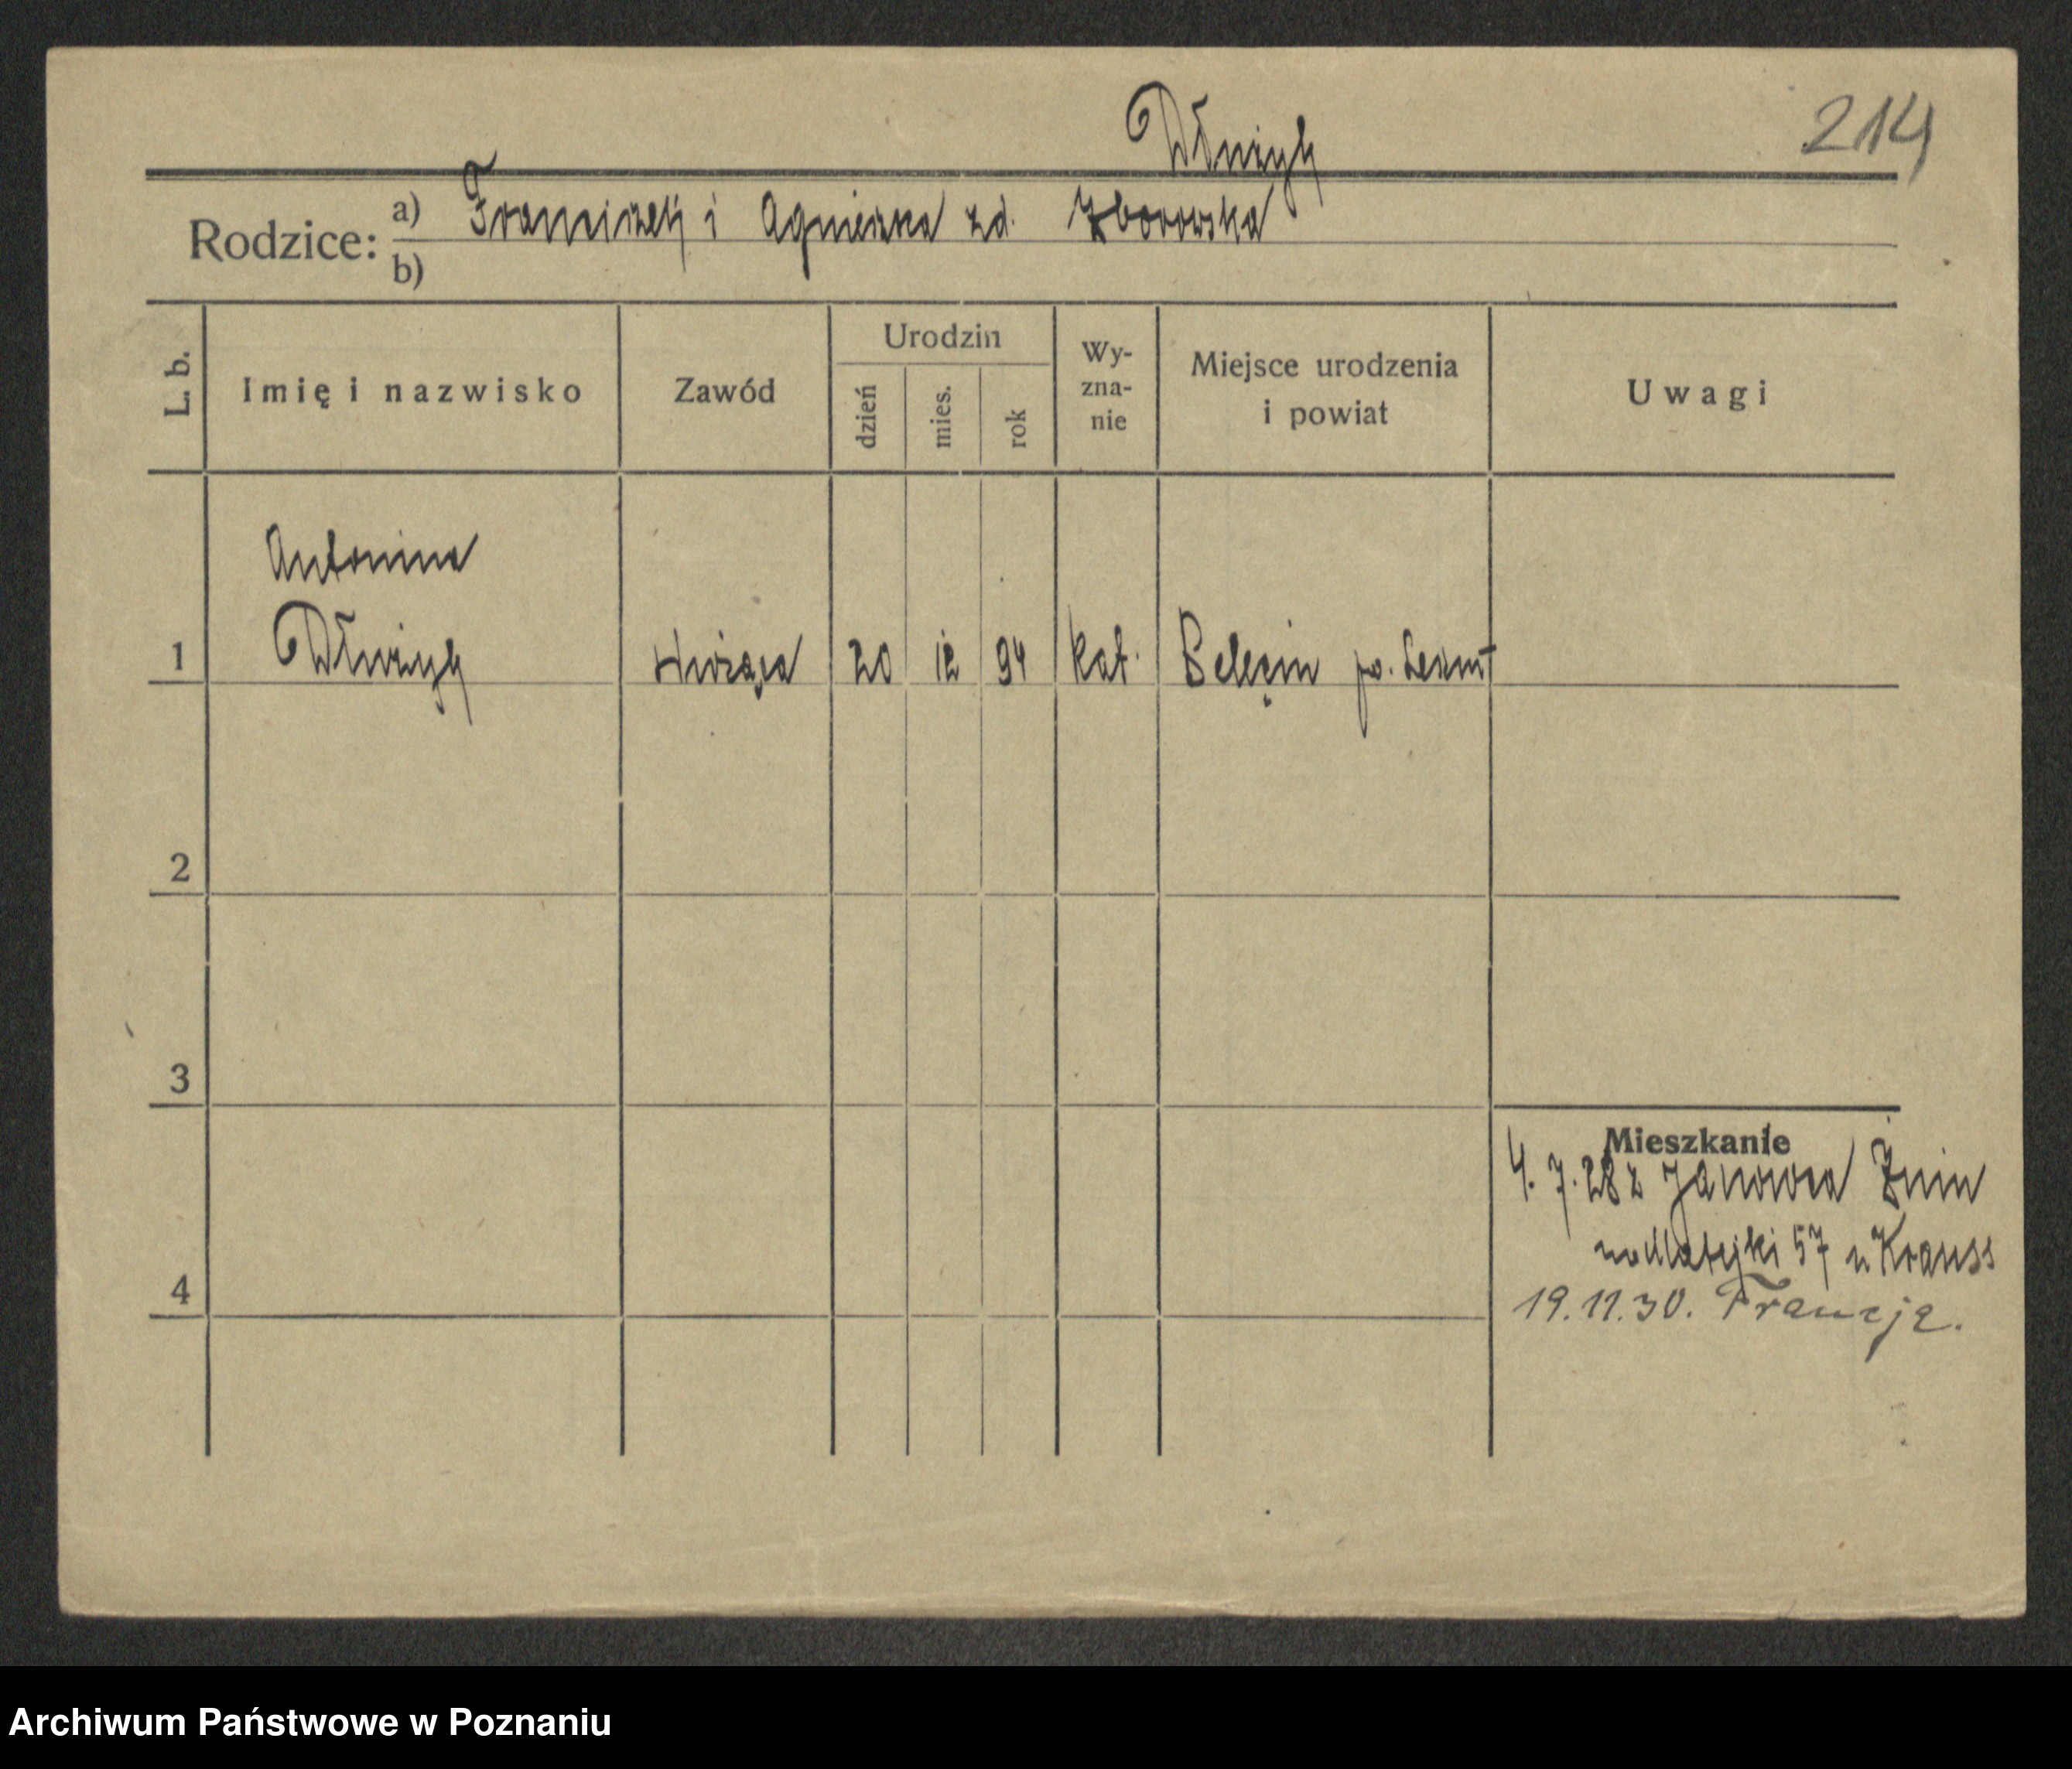 214
Dłużyk
Rodzice: a) Franciszek i Agnieszka zd. Zborowska
b)
L. b. Imię i nazwisko Zawód Urodzin dzień mies. rok Wy-zna-nie Miejsce urodzenia i powiat Uwagi
Antonina
1 Dłużyk służąca 20 12 94 kat. Belęcin po.
2
3
Mieszkanie
4. 7. 28 z Janowca Żnin
na Matejki 57 u Krauss
4
19.11.30. Francja.
Archiwum Państwowe w Poznaniu